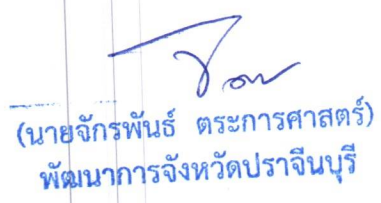 (นายจักรพันธ์ ตระการศาสตร์)
พัฒนาการจังหวัดปราจีนบุรี